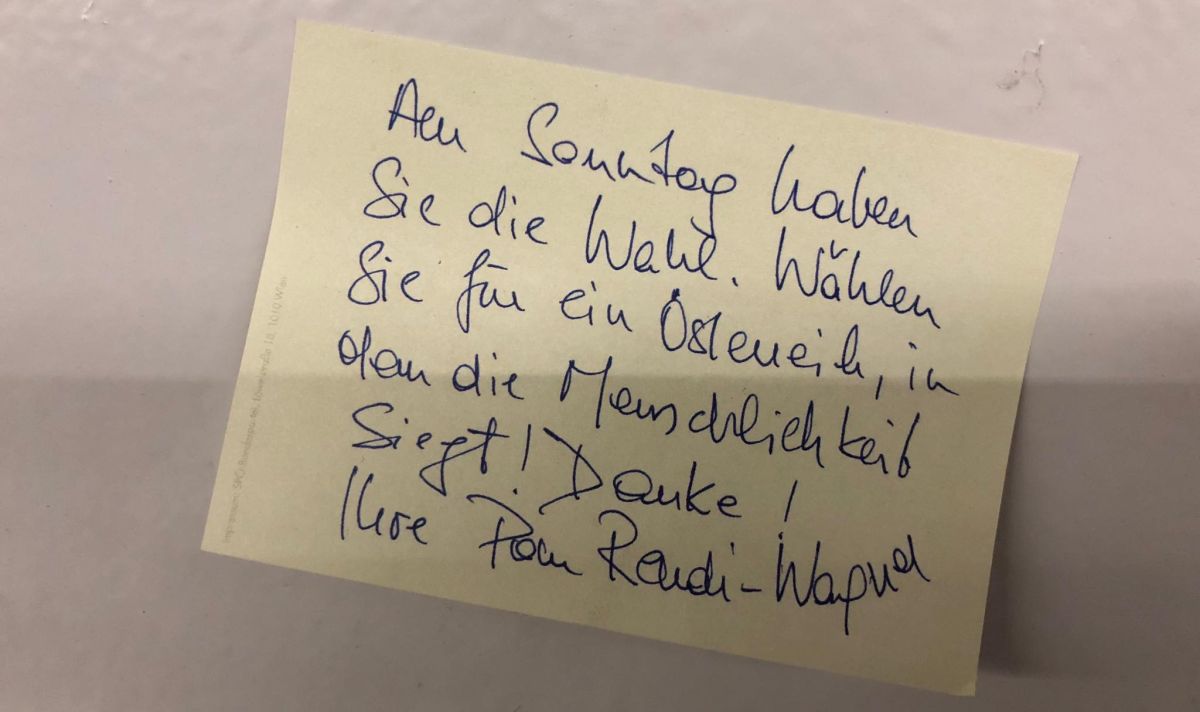 Am Sonntag haben
Sie die Wahl. Wählen
Sie für ein Österreich, in
dem die Menschlichkeit
Siegt! Danke!
Ihre Pam Rendi-Wagner
Impressum: SPÖ Bundespartei, Löwelstraße 18, 1010 Wien